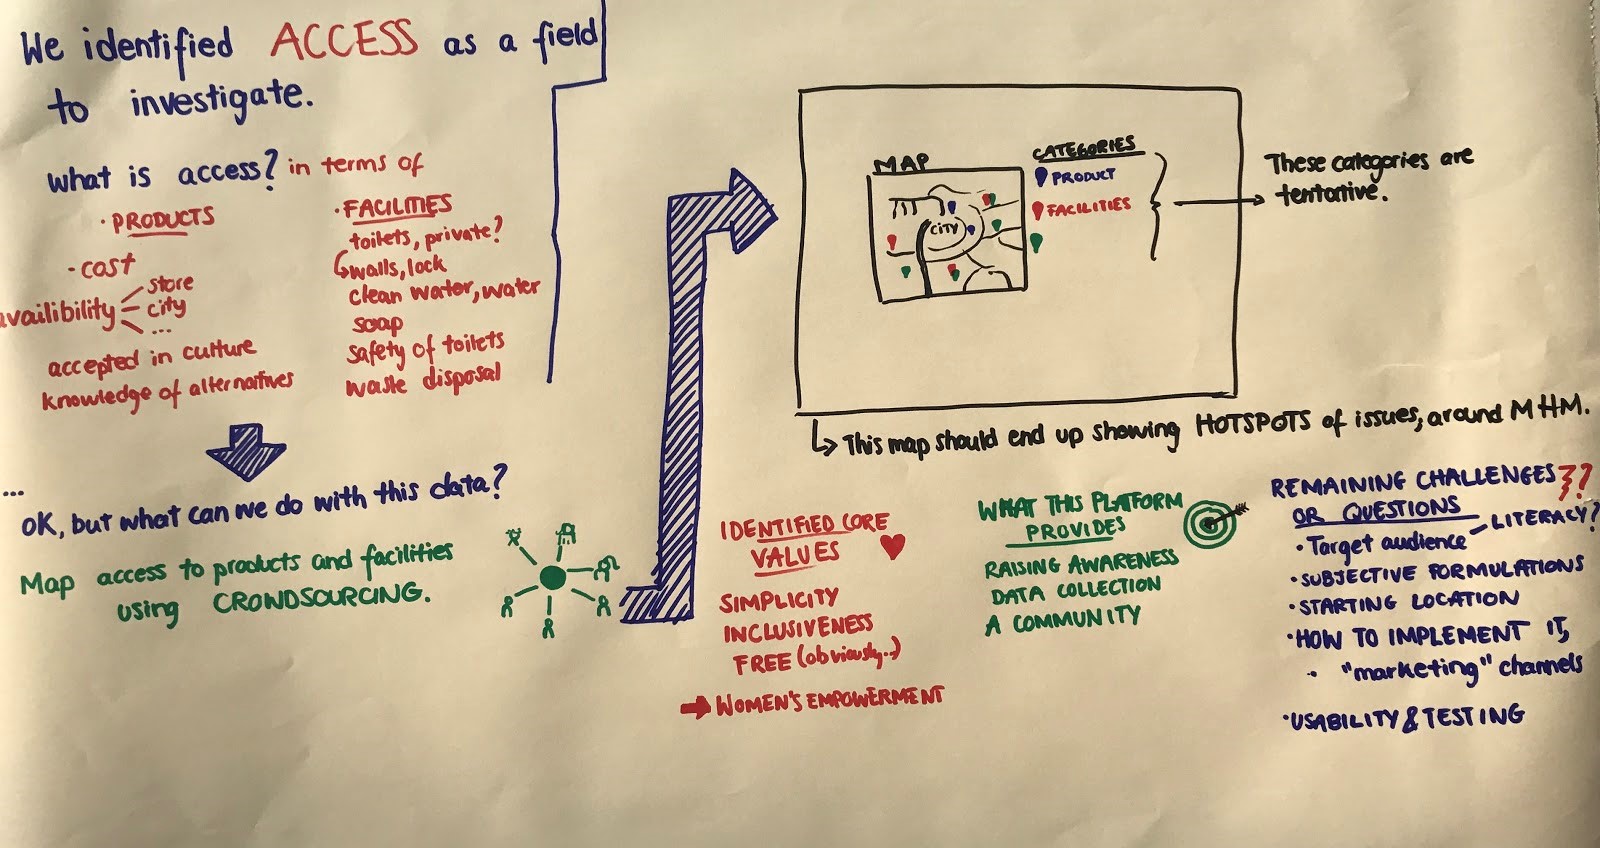 We identified ACCESS as a field
to investigate.
What is access? in terms of
· PRODUCTS
- cost
availibility
store
city
...
accepted in culture
knowledge of alternatives
· FACILITIES
toilets, private?
walls, lock
clean water, water
soap
safety of toilets
waste disposal
...
OK, but what can we do with this data?
Map access to products and facilities
using CROWDSOURCING.
MAP
CITY
CATEGORIES
PRODUCT
FACILITIES
These categories are
tentative.
This map should end up showing HOTSPOTS of issues, around MHM.
IDENTIFIED CORE
VALUES
SIMPLICITY
INCLUSIVENESS
FREE (obviously..)
WOMEN'S EMPOWERMENT
WHAT THIS PLATFORM
PROVIDES
RAISING AWARENESS
DATA COLLECTION
A COMMUNITY
REMAINING CHALLENGES ??
OR QUESTIONS
· Target audience - LITERACY?
· SUBJECTIVE FORMULATIONS
· STARTING LOCATION
· HOW TO IMPLEMENT IT,
· "marketing" channels
· USABILITY & TESTING